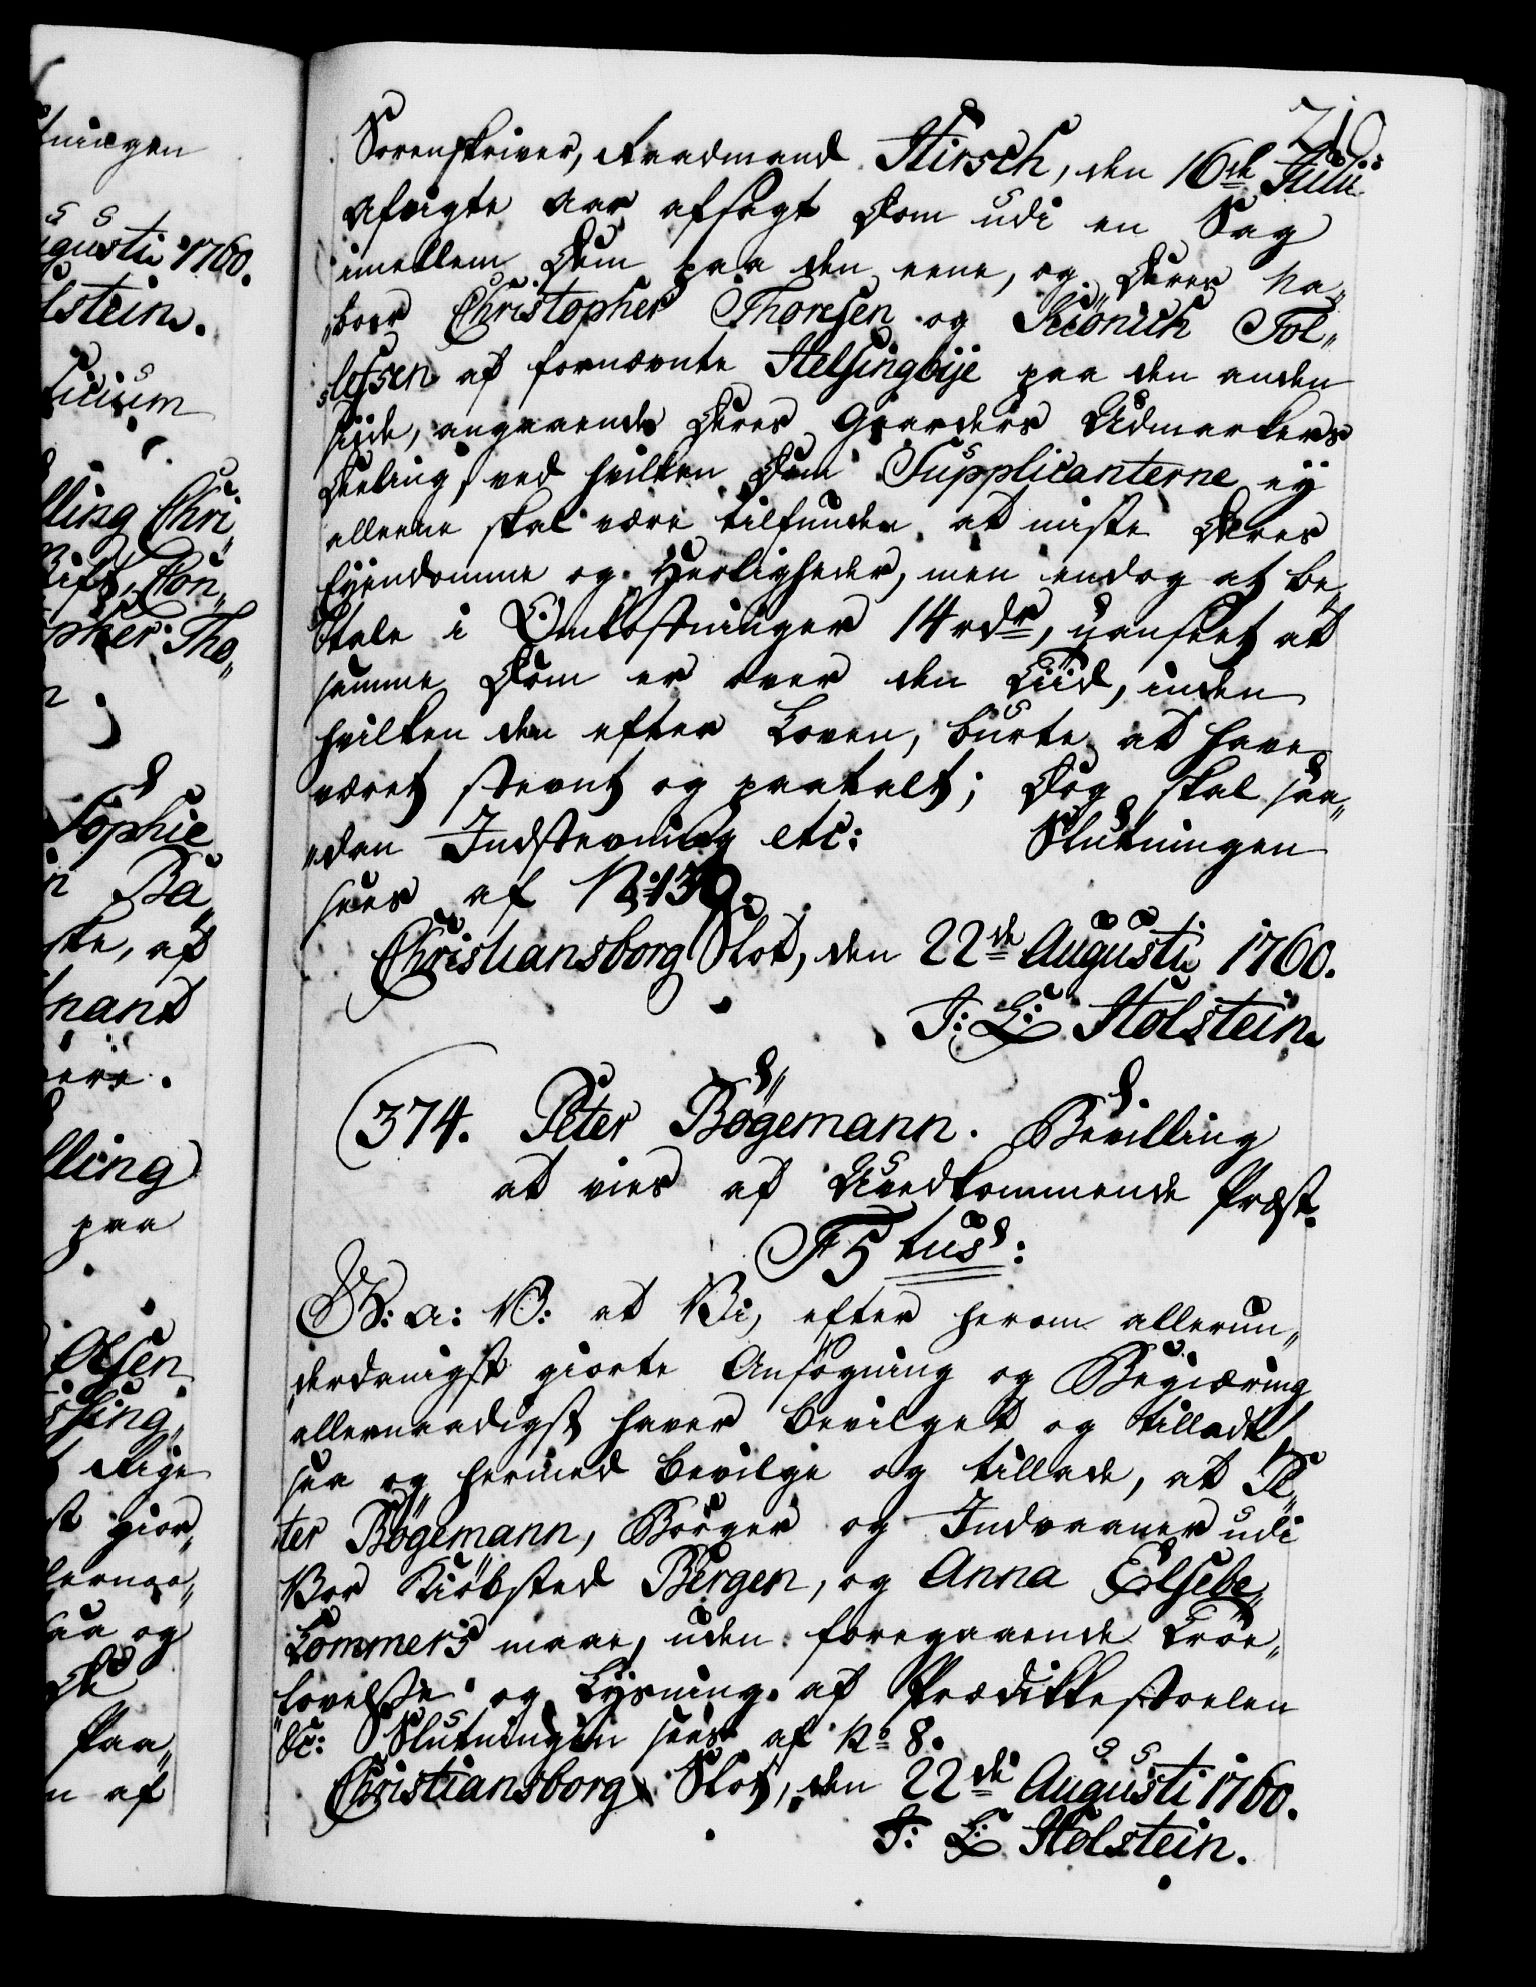 210
Sorenskriver, Raadmand Hirsch, den 16de Julii
afvigte Aar afsagt Dom udi en Sag
imellem Dem paa den eene, og Deres Na„
„boer Christopher Thoresen og Siönich Tol„
„lefsen af fornævnte Helsingbye paa den anden
side, angaaende Deres Gaarders Udmarkers
Deeling, ved hvilken Dom Supplicanterne ey
alleene skal være tilfunden at miste Deres
Eyendomme og Herligheder, men endog at be„
„tale i Omkostninger 14 rdr, uanseet at
samme Dom er over den Tiid, inden
hvilken den efter Loven, burte at have
været stevnt og paatalt; Dog skal saa„
„dan Indstevning etc: Slutningen
sees af No 139.
Christiansborg Slot, den 22de Augusti 1760.
J: L: Holstein.
(374. Peter Bögemann. Bevilling
at vies af Uvedkommende Præst.
F5tus:
G: a: V: at Vi, efter herom allerun„
„derdanigst giorte Ansögning og Begiæring
allernaadigst haver bevilget og tilladt
saa og hermed bevilge og tillade, at Pe„
„ter Bögemann, Borger og Indvaaner udi
Vor Kiöbsted Bergen, og Anna Elsebe
Lommers maae, uden foregaaende Troe„
„lovelse og Lysning af Prædikkestoelen
&c: Slutningen sees af No 8.
Christiansborg Slot, den 22de Augusti 1760.
J: L: Holstein.